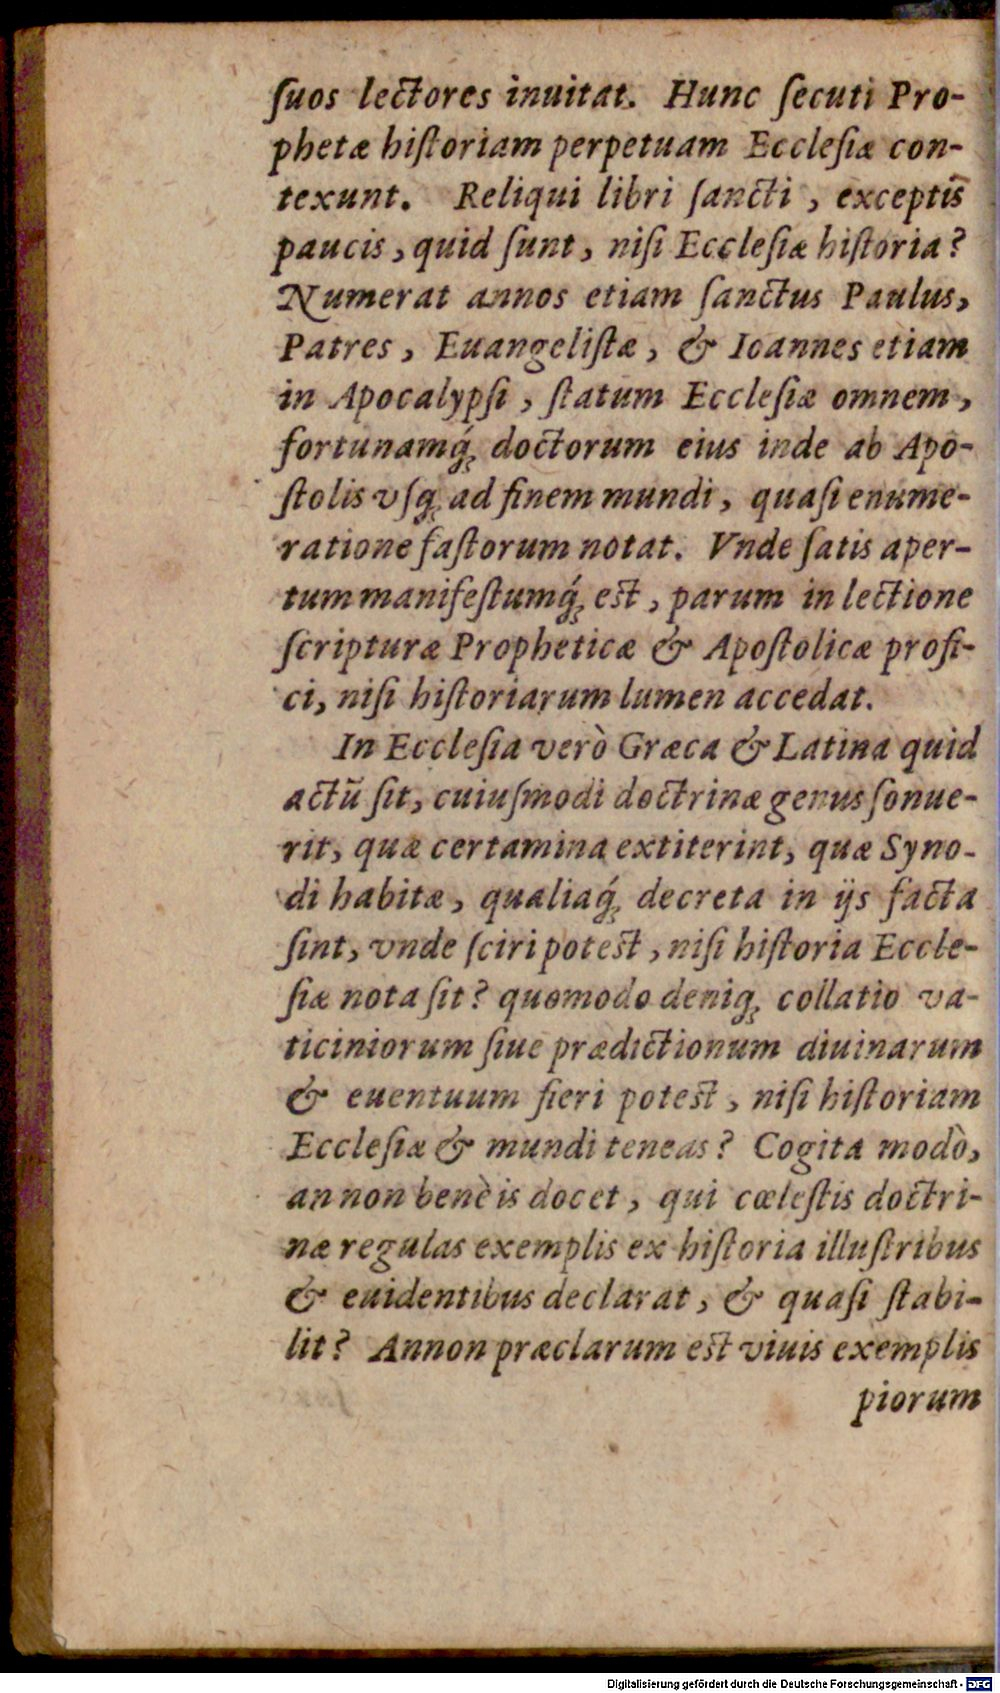 ſuos lectores inuitat. Hunc ſecuti Pro-
phetæ hiſtoriam perpetuam Eccleſiæ con-
texunt. Reliqui libri ſancti, exceptis
paucis, quid ſunt, niſi Eccleſiæ hiſtoria?
Numerat annos etiam ſanctus Paulus,
Patres, Euangeliſtæ, & Ioannes etiam
in Apocalypſi, ſtatum Eccleſiæ omnem,
fortunamq́; doctorum eius inde ab Apo-
ſtolis vſq; ad finem mundi, quaſi enume-
ratione faſtorum notat. Vnde ſatis aper-
tum manifeſtumq́; est, parum in lectione
ſcripturæ Propheticæ & Apoſtolicæ profi-
ci, niſi hiſtoriarum lumen accedat.
In Eccleſia verò Græca & Latina quid
actū ſit, cuiuſmodi doctrinæ genus ſonue-
rit, quæ certamina extiterint, quæ Syno-
di habitæ, qualiaq́; decreta in ijs facta
ſint, vnde ſciri potest, niſi hiſtoria Eccle-
ſiæ nota ſit? quomodo deniq; collatio va-
ticiniorum ſiue prædictionum diuinarum
& euentuum fieri potest, niſi hiſtoriam
Eccleſiæ & mundi teneas? Cogita modò,
an non benè is docet, qui cœleſtis doctri-
næ regulas exemplis ex hiſtoria illuſtribus
& euidentibus declarat, & quaſi ſtabi-
lit? Annon præclarum est viuis exemplis
piorum
Digitalisierung gefördert durch die Deutsche Forschungsgemeinschaft - DFG